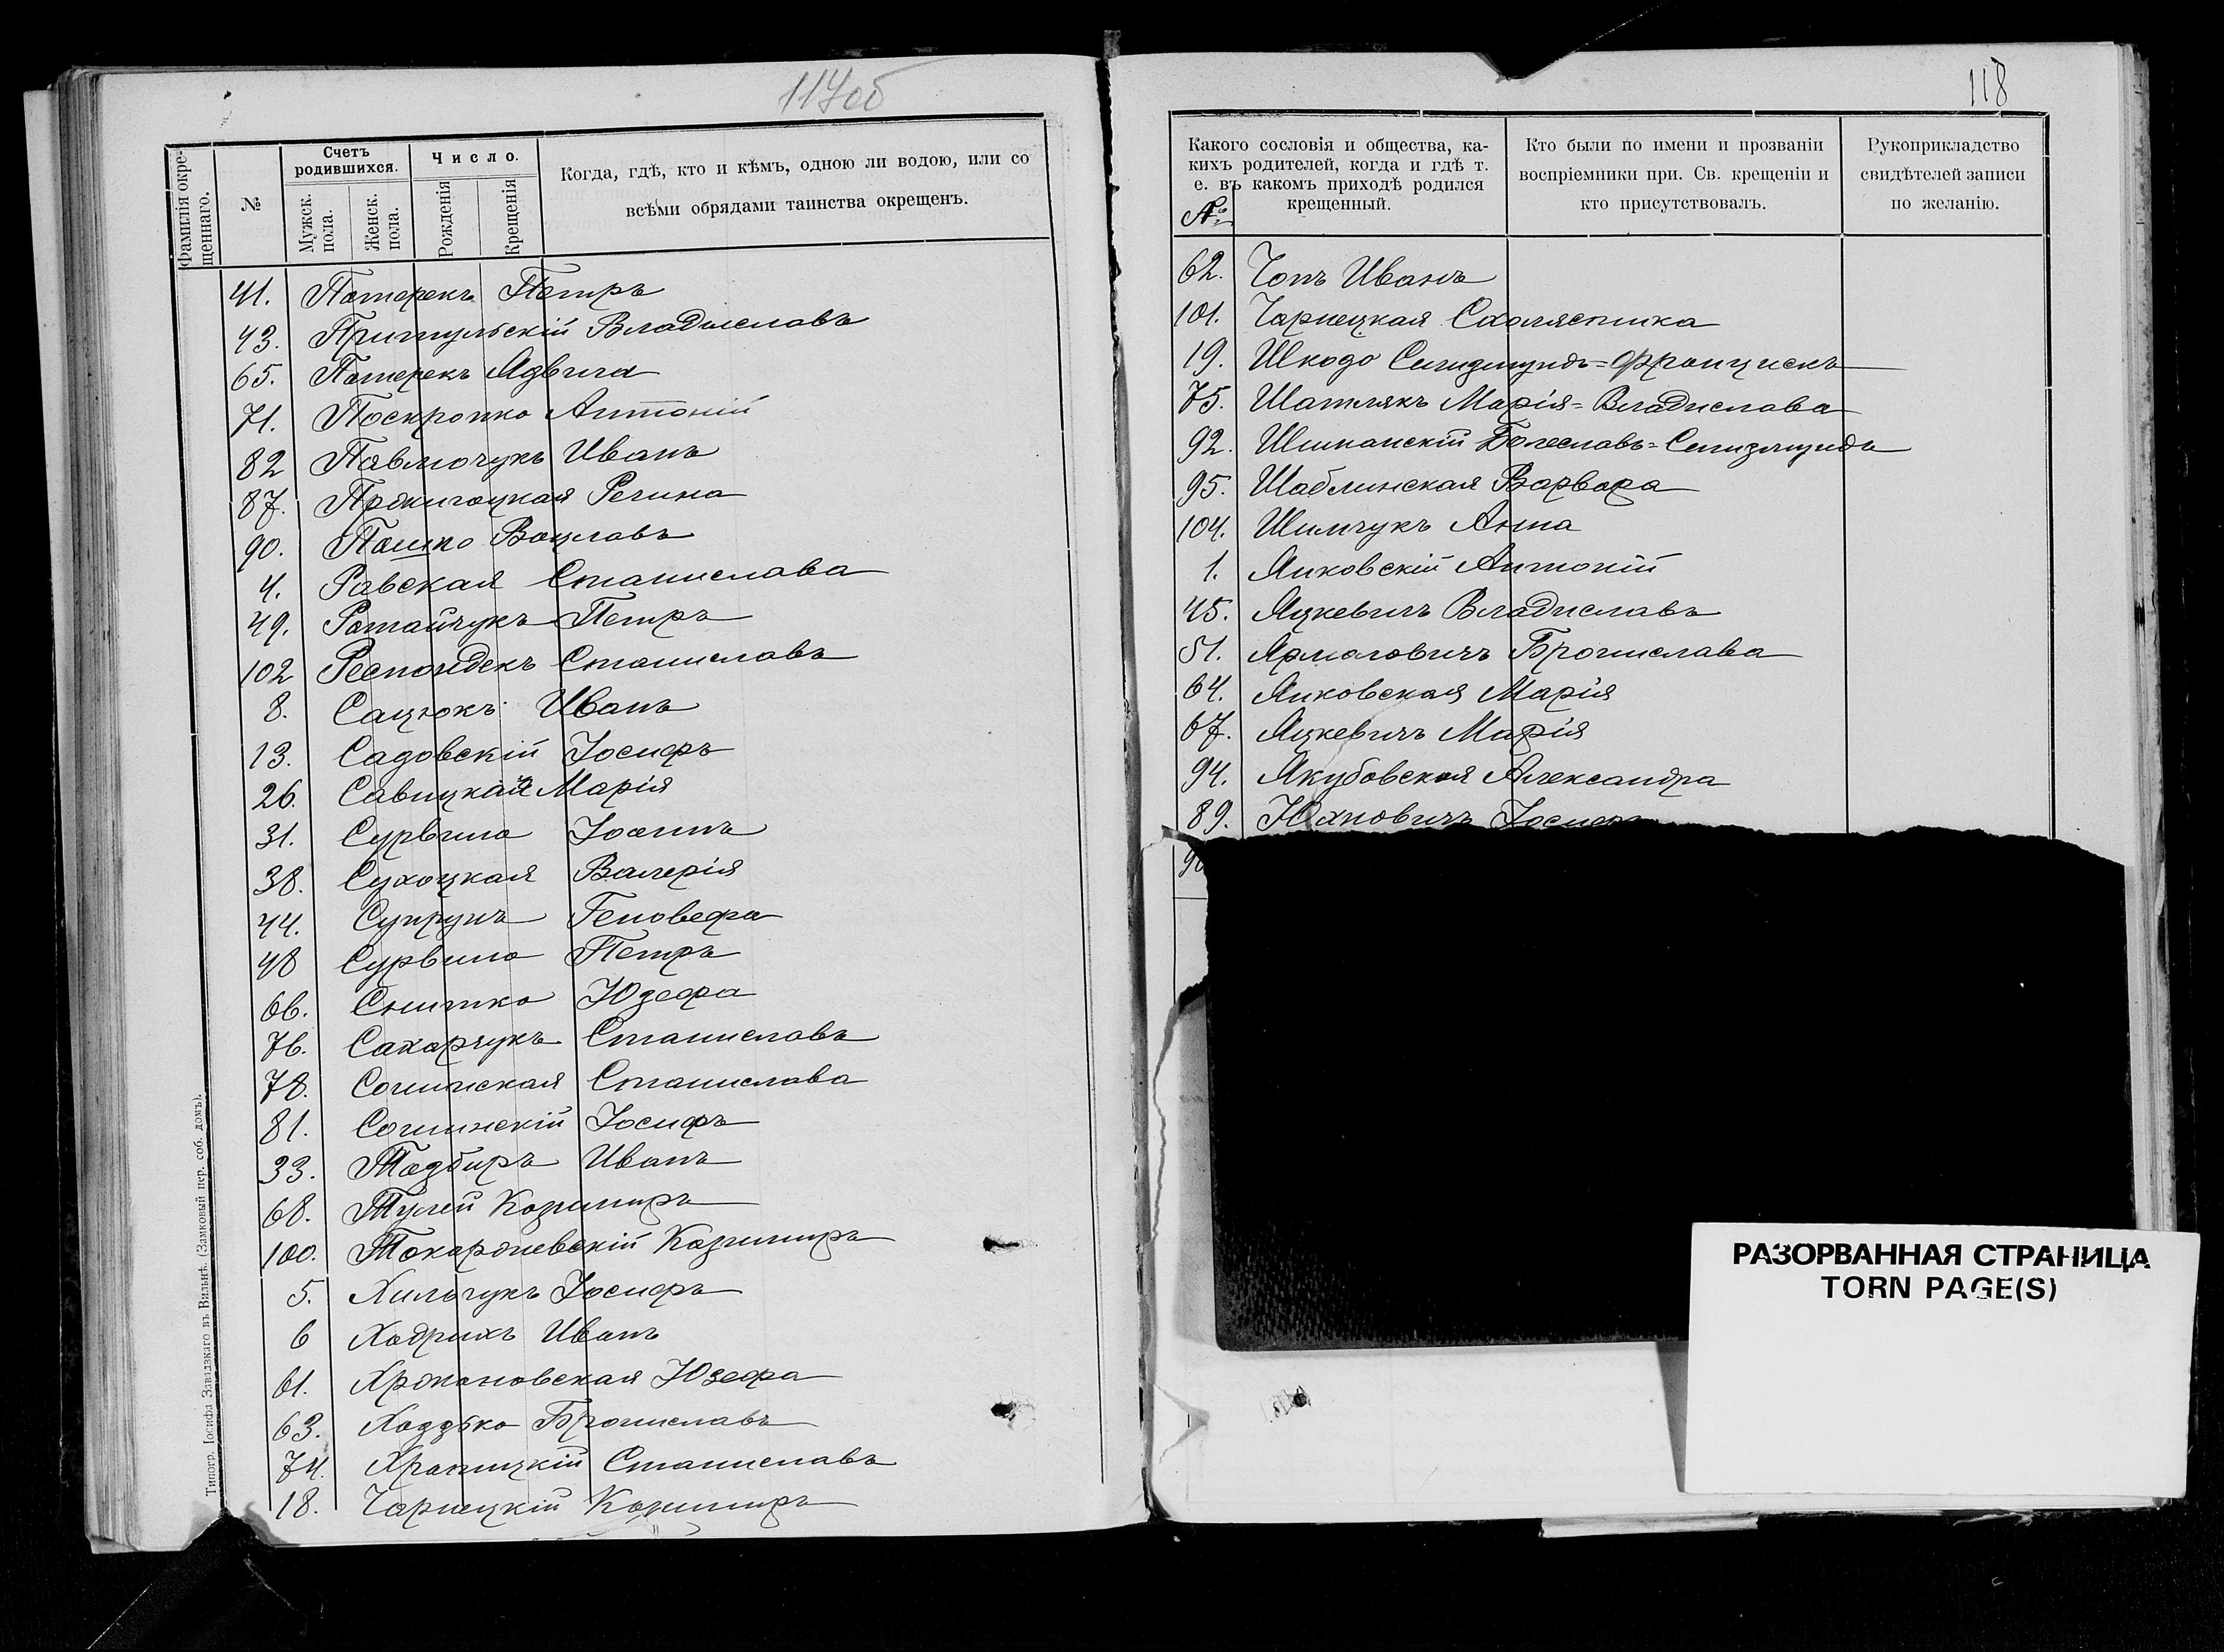 117об
Фамилія окрещеннаго.
№
Счетъ родившихся.
Мужск. пола.
Женск. пола.
Число.
Рожденія
Крещенія
Когда, гдѣ, кто и кѣмъ, одною ли водою, или со
всѣми обрядами таинства окрещенъ.
41. Патерекъ Петръ
43. Притульскій Владиславъ
65. Патерекъ Ядвига
71. Поскропко Антоній
82 Павлючукъ Иванъ
87. Регина
90. Пашко Вацлавъ
4. Равская Станислава
49. Ратайчукъ Петръ
102 Респондекъ Станиславъ
8. Сацюкъ Иванъ
13. Садовскій Іосифъ
26. Савицкая Марія
31. Сурвило Іоаннъ
38. Сухоцкая Валерія
44. Супрунъ Геновефа
48 Сурвило Петръ
66. Снитко Юзефа
76. Сахарчукъ Станиславъ
78. Сочинская Станислава
81. Сочинскій Іосифъ
33. Тадбиръ Иванъ
68. Тулей Казимиръ
100. Токаржевскій Казимиръ
5. Хильчукъ Іосифъ
6 Ходрихъ Иванъ
61. Хржановская Юзефа
63. Ходзько Брониславъ
74. Храпицкій Станиславъ
18. Чарнецкій Казимиръ
Типогр. Іосифа Завадзкаго въ Вильнѣ. (Замковый пер. соб. домъ).
118
Какого сословія и общества, ка-
кихъ родителей, когда и гдѣ т.
е. въ какомъ приходѣ родился
крещенный.
№
Кто были по имени и прозваніи
воспріемники при. Св. крещеніи и
кто присутствовалъ.
Рукоприкладство
свидѣтелей записи
по желанію.
62. Чопъ Иванъ
101. Чарнецкая Схолястика
19. Шкодо Сигизмундъ=Францискъ
75. Шатлякъ Марія=Владислава
92. Шиманскій Болеславъ=Сигизмундъ
95. Шаблинская Варвара
104. Шимчукъ Анна
1. Янковскій Антоній
45. Яцкевичъ Владиславъ
51. Ярмоловичъ Бронислава
64. Янковская Марія
67. Яцкевичъ Марія
94. Якубовская Александра
89. Юхновичъ Іосифъ
РАЗОРВАННАЯ СТРАНИЦА
TORN PAGE(S)